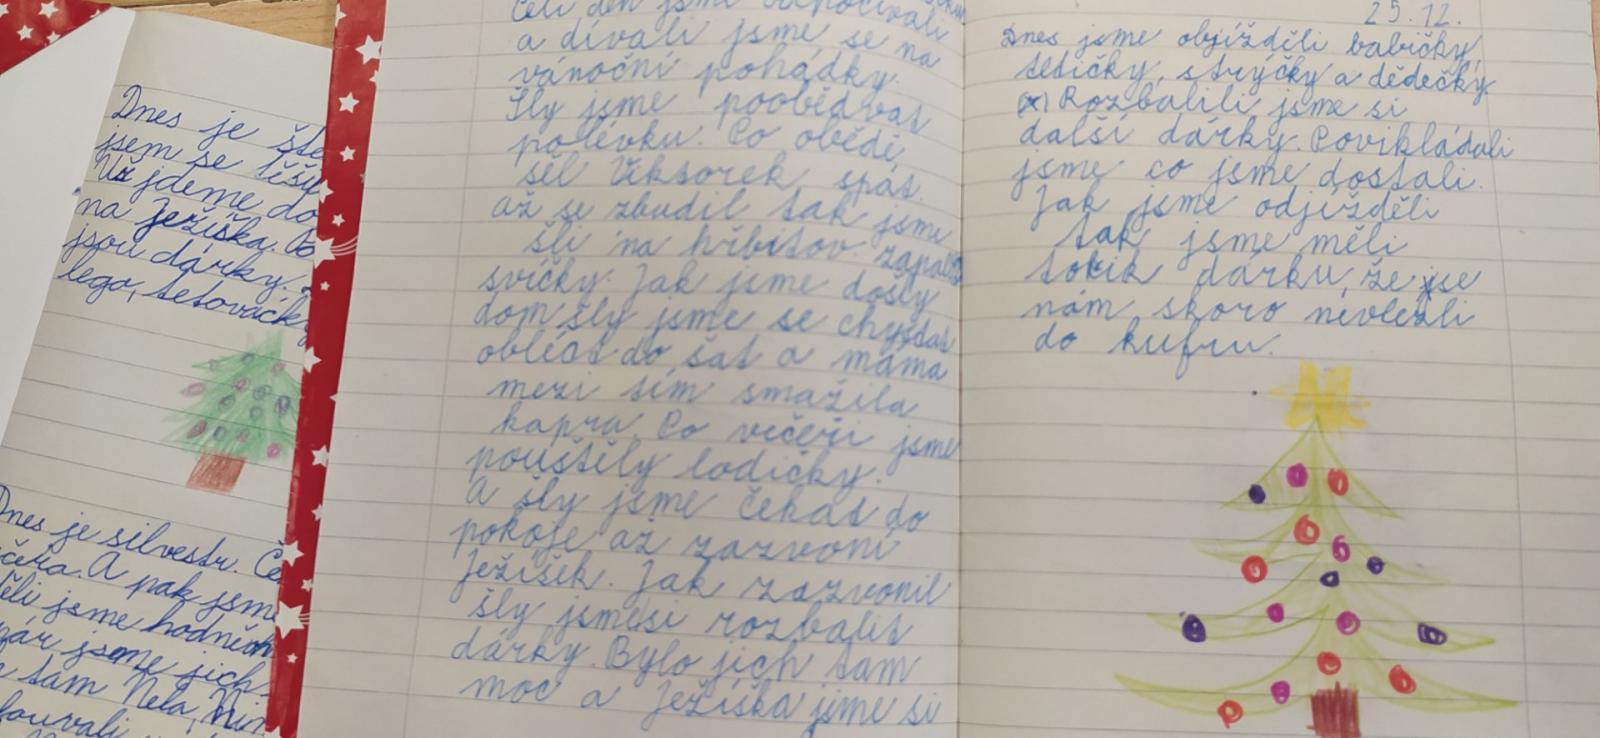 Dnes je ště
jsem se těši
Už jdeme do
na Ježíška. Po
jsou dárky.
lego, tetovačky
Dnes je silvestr. Če
čeka. A pak jsme
ěli jsme hodně
pár jsme jich
tam Nela,
ouvali
celí den jsme odpočívali
a dívali jsme se na
vánoční pohádky.
Šly jsme poobědvat
polévku. Po obědě
šel Viktorek spát.
až se zbudil tak jsme
šli na hřbitov zapálit
svíčky. Jak jsme došly
dom šly jsme se chystat
obléct do šat a máma
mezi tím smažila
kapra. Po večeři jsme
pouštěly lodičky.
A šly jsme čekat do
pokoje až zazvoní
Ježíšek. Jak zazvonil
šly jsmesi rozbalit
dárky. Bylo jich tam
moc a Ježíška jsme si
25.12.
Dnes jsme objížděli babičky,
tetičky, strýčky a dědečky
Rozbalili jsme si
další dárky. Povikládali
jsme co jsme dostali.
Jak jsme odjížděli
tak jsme měli
tolik dárku, že se
nám skoro nevlezli
do kufru.